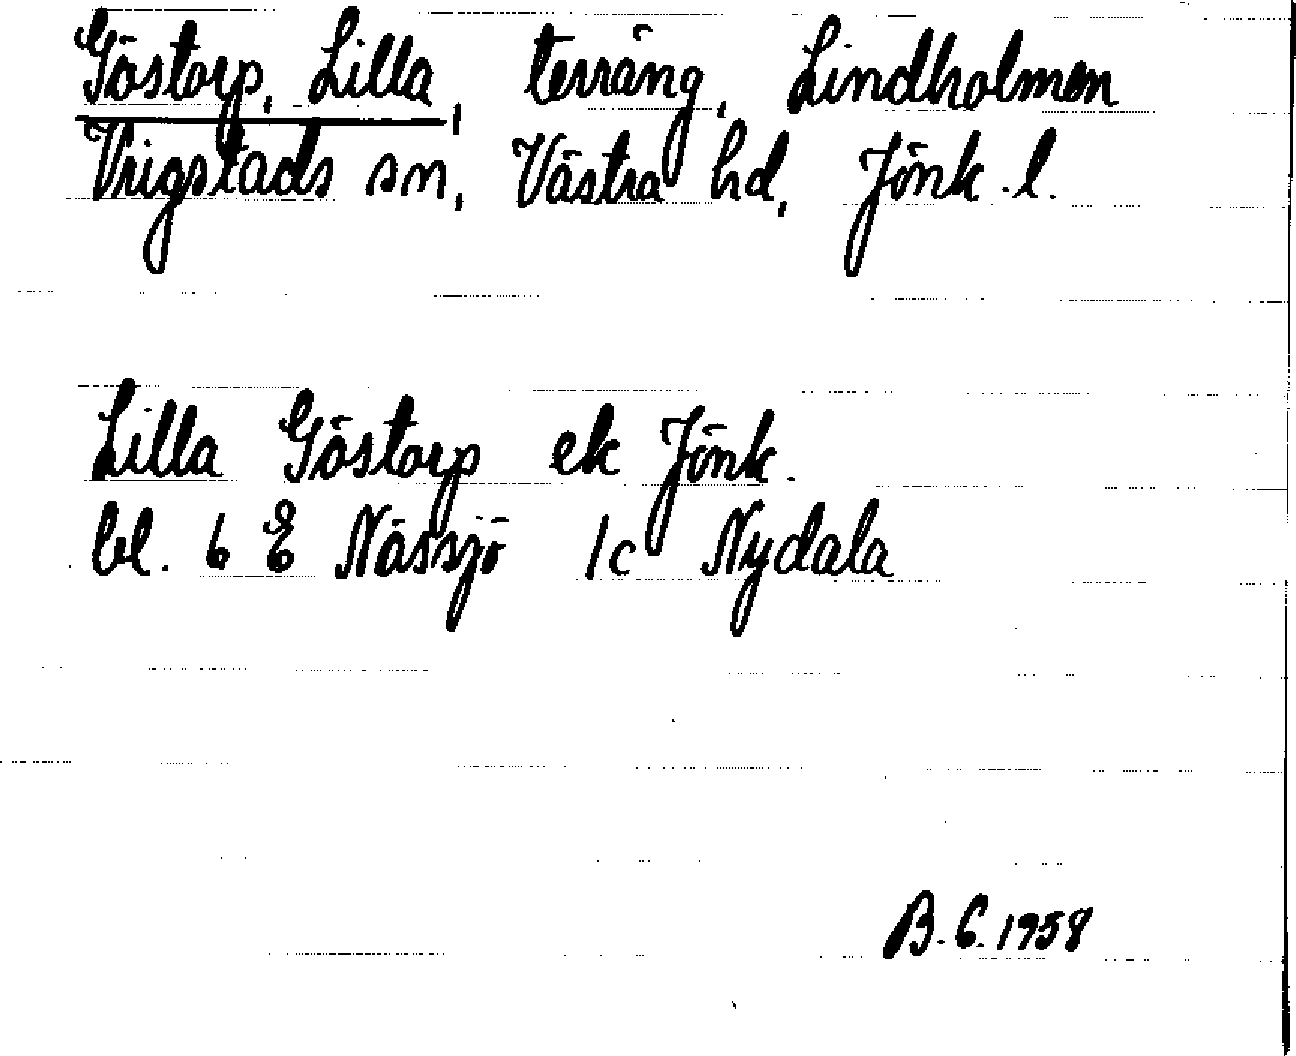 Göstorp, Lilla, terräng, Lindholmen
Vrigstads sn, Västra hd, Jönk. l.
Lilla Göstorp ek Jönk.
bl. 6 E Nässjö 1c Nydala
B. G. 1958